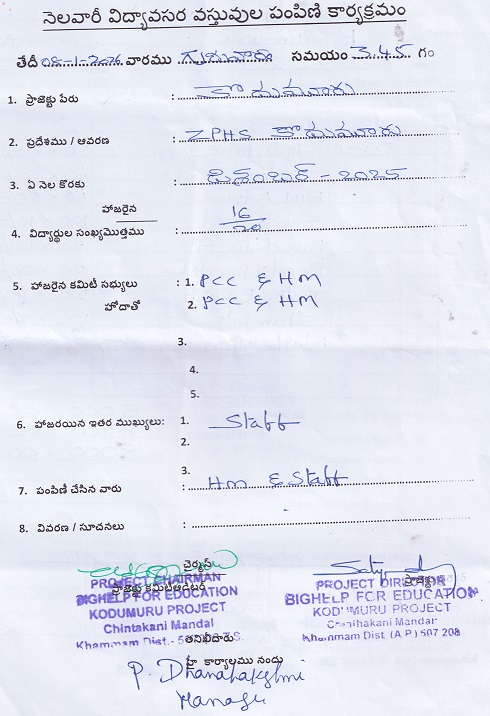 నెలవారీ విద్యావసర వస్తువుల పంపిణి కార్యక్రమం
తేదీ 08-1-2026 వారము గురువారం సమయం 3.45 గం
1. ప్రాజెక్టు పేరు : కొడుమూరు
2. ప్రదేశము / ఆవరణ : ZPHS కొడుమూరు
3. ఏ నెల కొరకు : డిశెంబర్ - 2025
హాజరైన 16
4. విద్యార్థుల సంఖ్యమొత్తము : 20
5. హాజరైన కమిటీ సభ్యులు : 1. PCC & HM
హోదాతో 2. PCC & HM
3.
4.
5.
6. హాజరయిన ఇతర ముఖ్యులు: 1. Staff
2.
3.
7. పంపిణి చేసిన వారు : HM & Staff
8. వివరణ / సూచనలు :
చైర్మన్
ప్రాజెక్టు కమిటీఆడిటర్ ప్రాజెక్టు
PROJECT CHAIRMAN
BIGHELP FOR EDUCATION
KODUMURU PROJECT
Chintakani Mandal
Khammam Dist.
PROJECT DIRECTOR
BIGHELP FOR EDUCATION
KODUMURU PROJECT
Chintakani Mandal
Khammam Dist (A.P) 507 208
తనిఖీదారు
హై కార్యాలము నందు
P. Dhanalakshmi
Manager